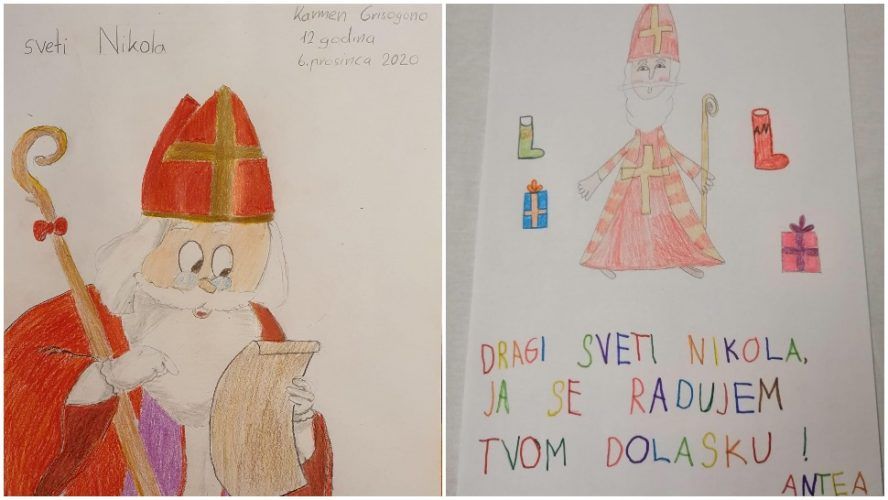 sveti Nikola
Karmen Grisogono
12 godina
6. prosinca 2020
L
AM
DRAGI SVETI NIKOLA,
JA SE RADUJEM
TVOM DOLASKU !
ANTEA